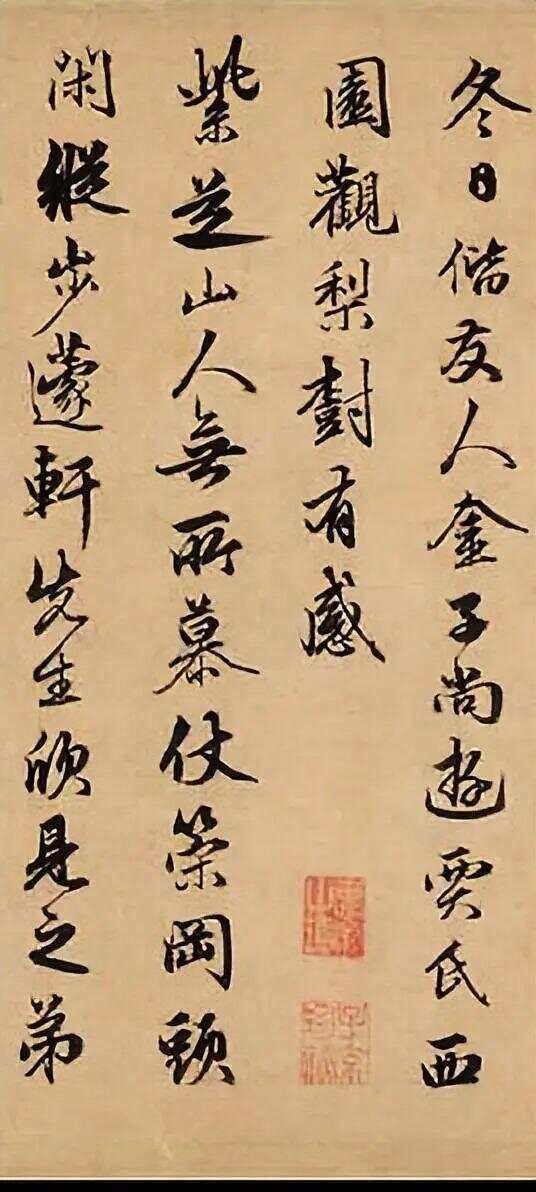 冬日偕友人金子尚遊賈氏西
園觀梨樹有感
紫芝山人無所慕仗策岡頭
閑縱步蘧軒先生欣見之第